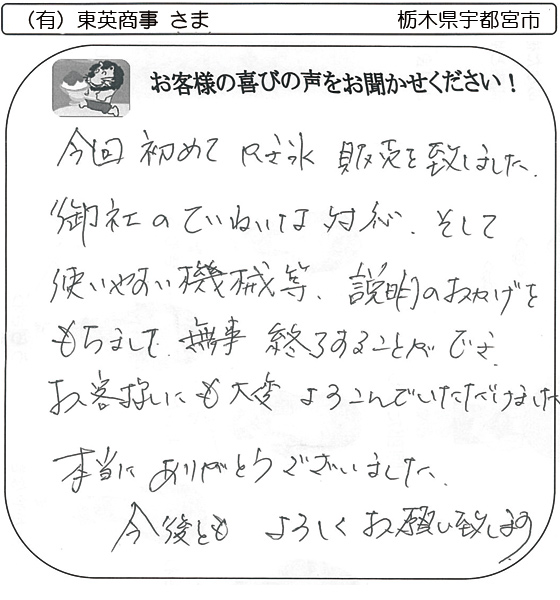 (有) 東英商事 さま
栃木県宇都宮市
お客様の喜びの声をお聞かせください!
今回 初めて かき氷 販売を致しました.
御社のていねいな 対応. そして
使いやすい機械等、説明のおかげを
もちまして 無事 終了することができ.
お客様にも大変 よろこんでいただけました
本当に ありがとうございました.
今後とも よろしくお願い致します